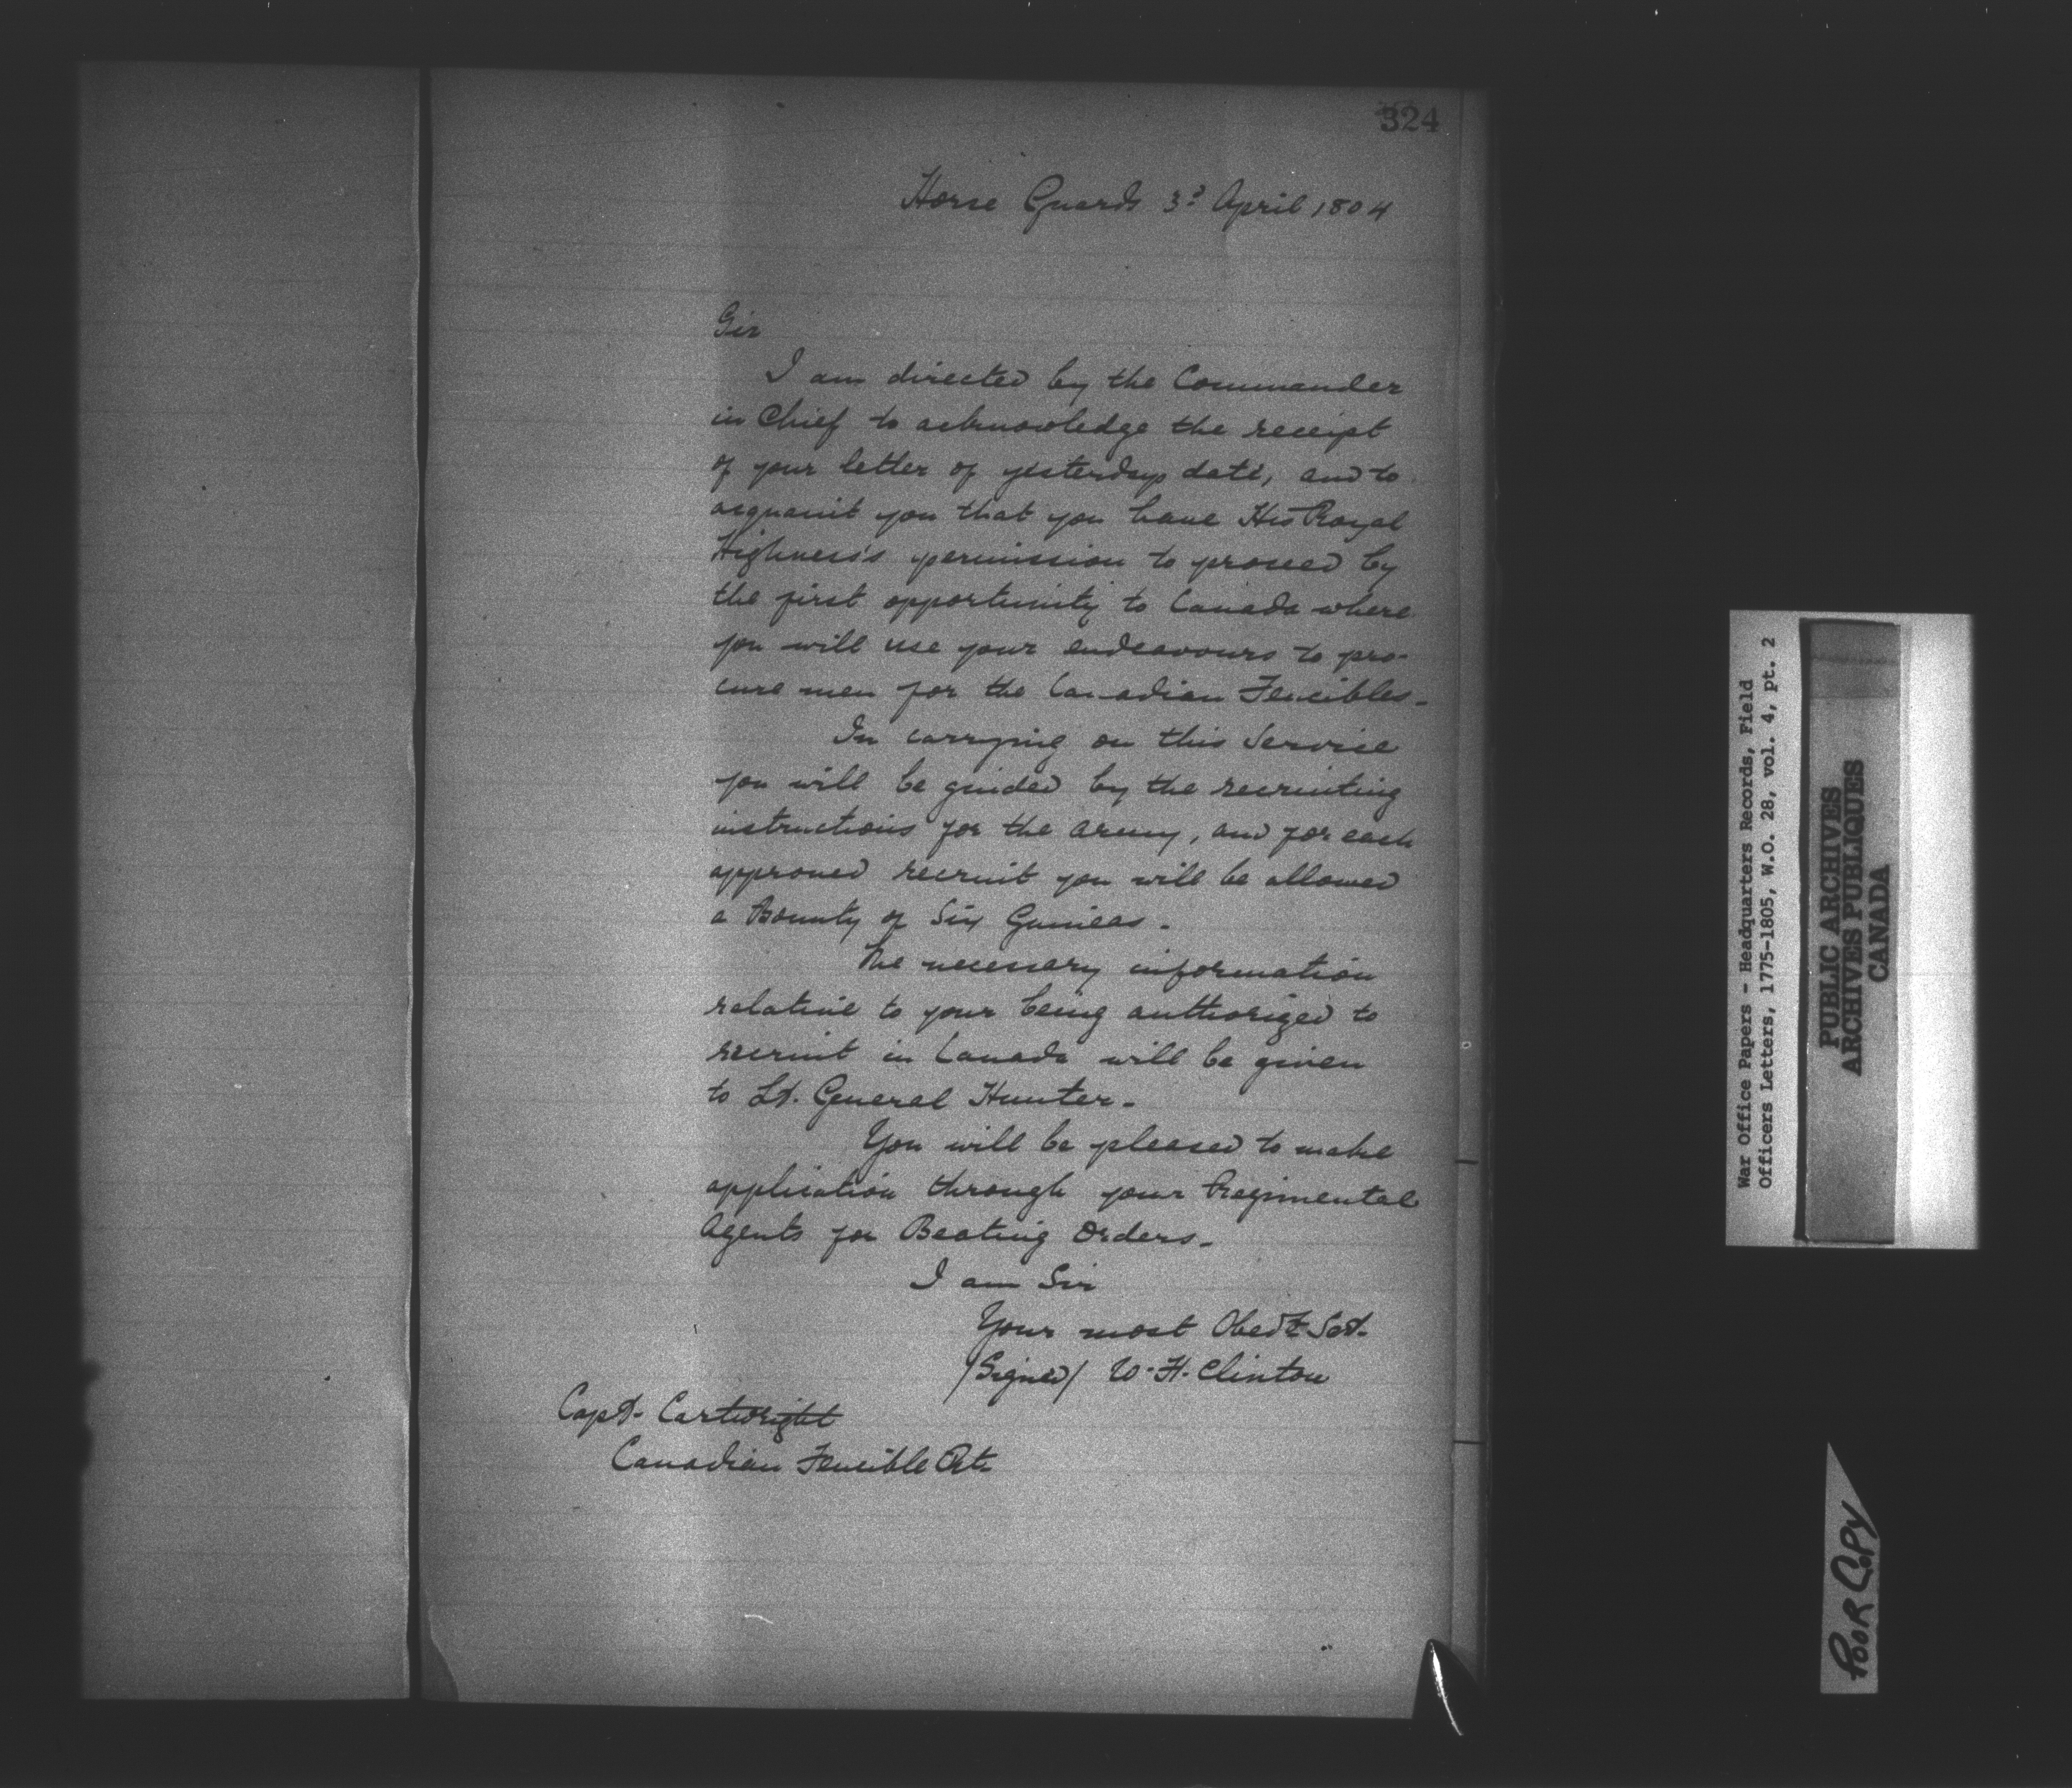 324
Horse Guards 3d April 1804
Sir
I am directed by the Commander
in Chief to acknowledge the receipt
of your letter of yesterdays date, and to
acquaint you that you have His Royal
Highness's permission to proceed by
the first opportunity to Canada where
you will use your endeavours to pro-
cure men for the Canadian Fencibles -
In carrying on this Service
you will be guided by the recruiting
instructions for the army, and for each
approved recruit you will be allowed
a Bounty of Six Guineas -
The necessary information
relative to your being authorized to
recruit in Canada will be given
to Lt. General Hunter -
You will be pleased to make
application through your Regimental
Agents for Beating Orders -
I am Sir
Your most Obedt Sert.
/Signed/ W. H. Clinton
Capt. Cartwright
Canadian Fencible Rt.
War Office Papers - Headquarters Records, Field
Officers Letters, 1775-1805, W.O. 28, vol. 4, pt. 2
PUBLIC ARCHIVES
ARCHIVES PUBLIQUES
CANADA
POOR COPY